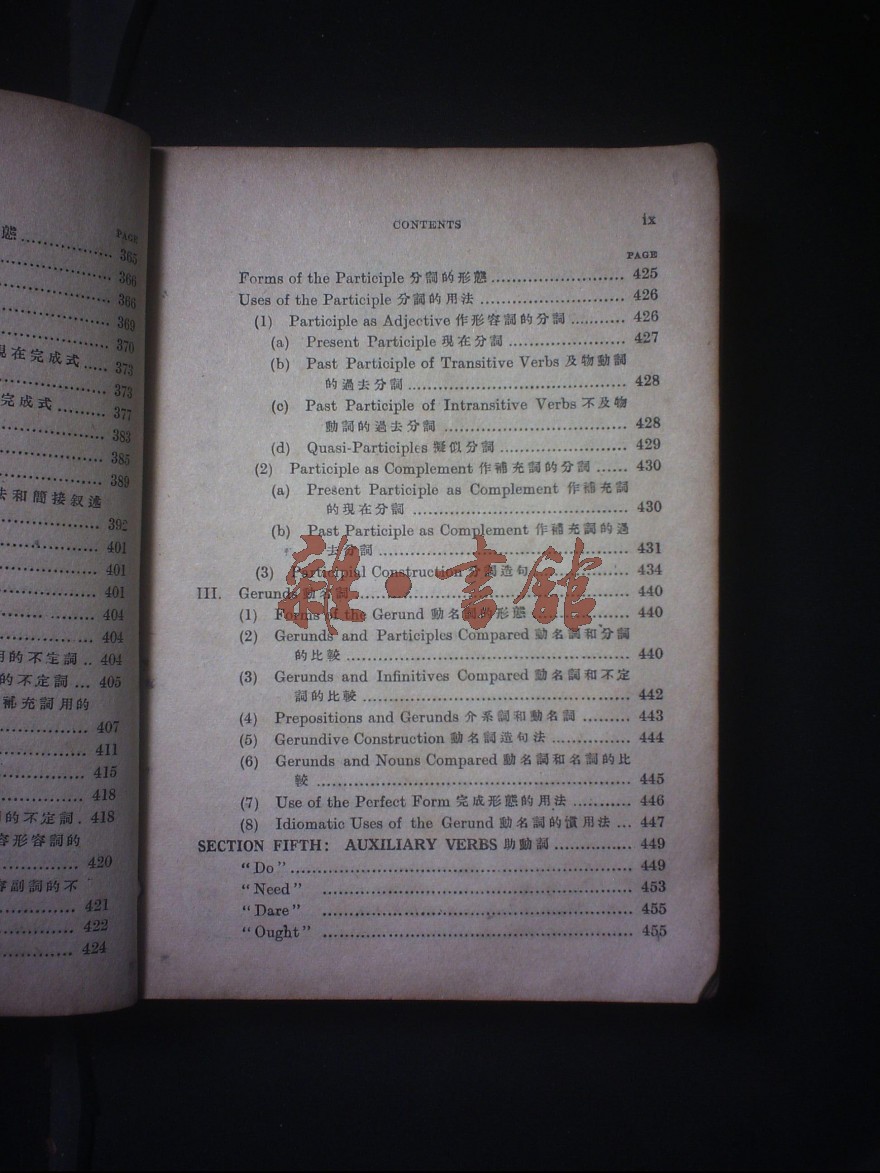 態 ....................
PAGE
365
366
366
369
370
現在完成式 ..... 373
373
完成式 ......... 377
383
385
389
法和簡接叙述
392
401
401
401
404
404
用的不定詞 .. 404
的不定詞 ... 405
補充詞用的
407
411
415
418
的不定詞 . 418
容形容詞的
420
容副詞的不
421
422
424
CONTENTS ix
PAGE
Forms of the Participle 分詞的形態 .......................... 425
Uses of the Participle 分詞的用法 ............................ 426
(1) Participle as Adjective 作形容詞的分詞 ........... 426
(a) Present Participle 現在分詞 ....................... 427
(b) Past Participle of Transitive Verbs 及物動詞
的過去分詞 ........................................... 428
(c) Past Participle of Intransitive Verbs 不及物
動詞的過去分詞 .................................... 428
(d) Quasi-Participles 擬似分詞 ......................... 429
(2) Participle as Complement 作補充詞的分詞 ...... 430
(a) Present Participle as Complement 作補充詞
的現在分詞 .......................................... 430
(b) Past Participle as Complement 作補充詞的過
去分詞 ................................................. 431
(3) Participial Construction 分詞造句 .................... 434
III. Gerunds 動名詞 ...................................................... 440
(1) Forms of the Gerund 動名詞的形態 ................... 440
(2) Gerunds and Participles Compared 動名詞和分詞
的比較 ....................................................... 440
(3) Gerunds and Infinitives Compared 動名詞和不定
詞的比較 .................................................... 442
(4) Prepositions and Gerunds 介系詞和動名詞 ......... 443
(5) Gerundive Construction 動名詞造句法 ............... 444
(6) Gerunds and Nouns Compared 動名詞和名詞的比
較 .............................................................. 445
(7) Use of the Perfect Form 完成形態的用法 ........... 446
(8) Idiomatic Uses of the Gerund 動名詞的慣用法 ... 447
SECTION FIFTH: AUXILIARY VERBS 助動詞 ............... 449
"Do" .................................................................... 449
"Need" ............................................................... 453
"Dare" ............................................................... 455
"Ought" .............................................................. 455
雜·書館